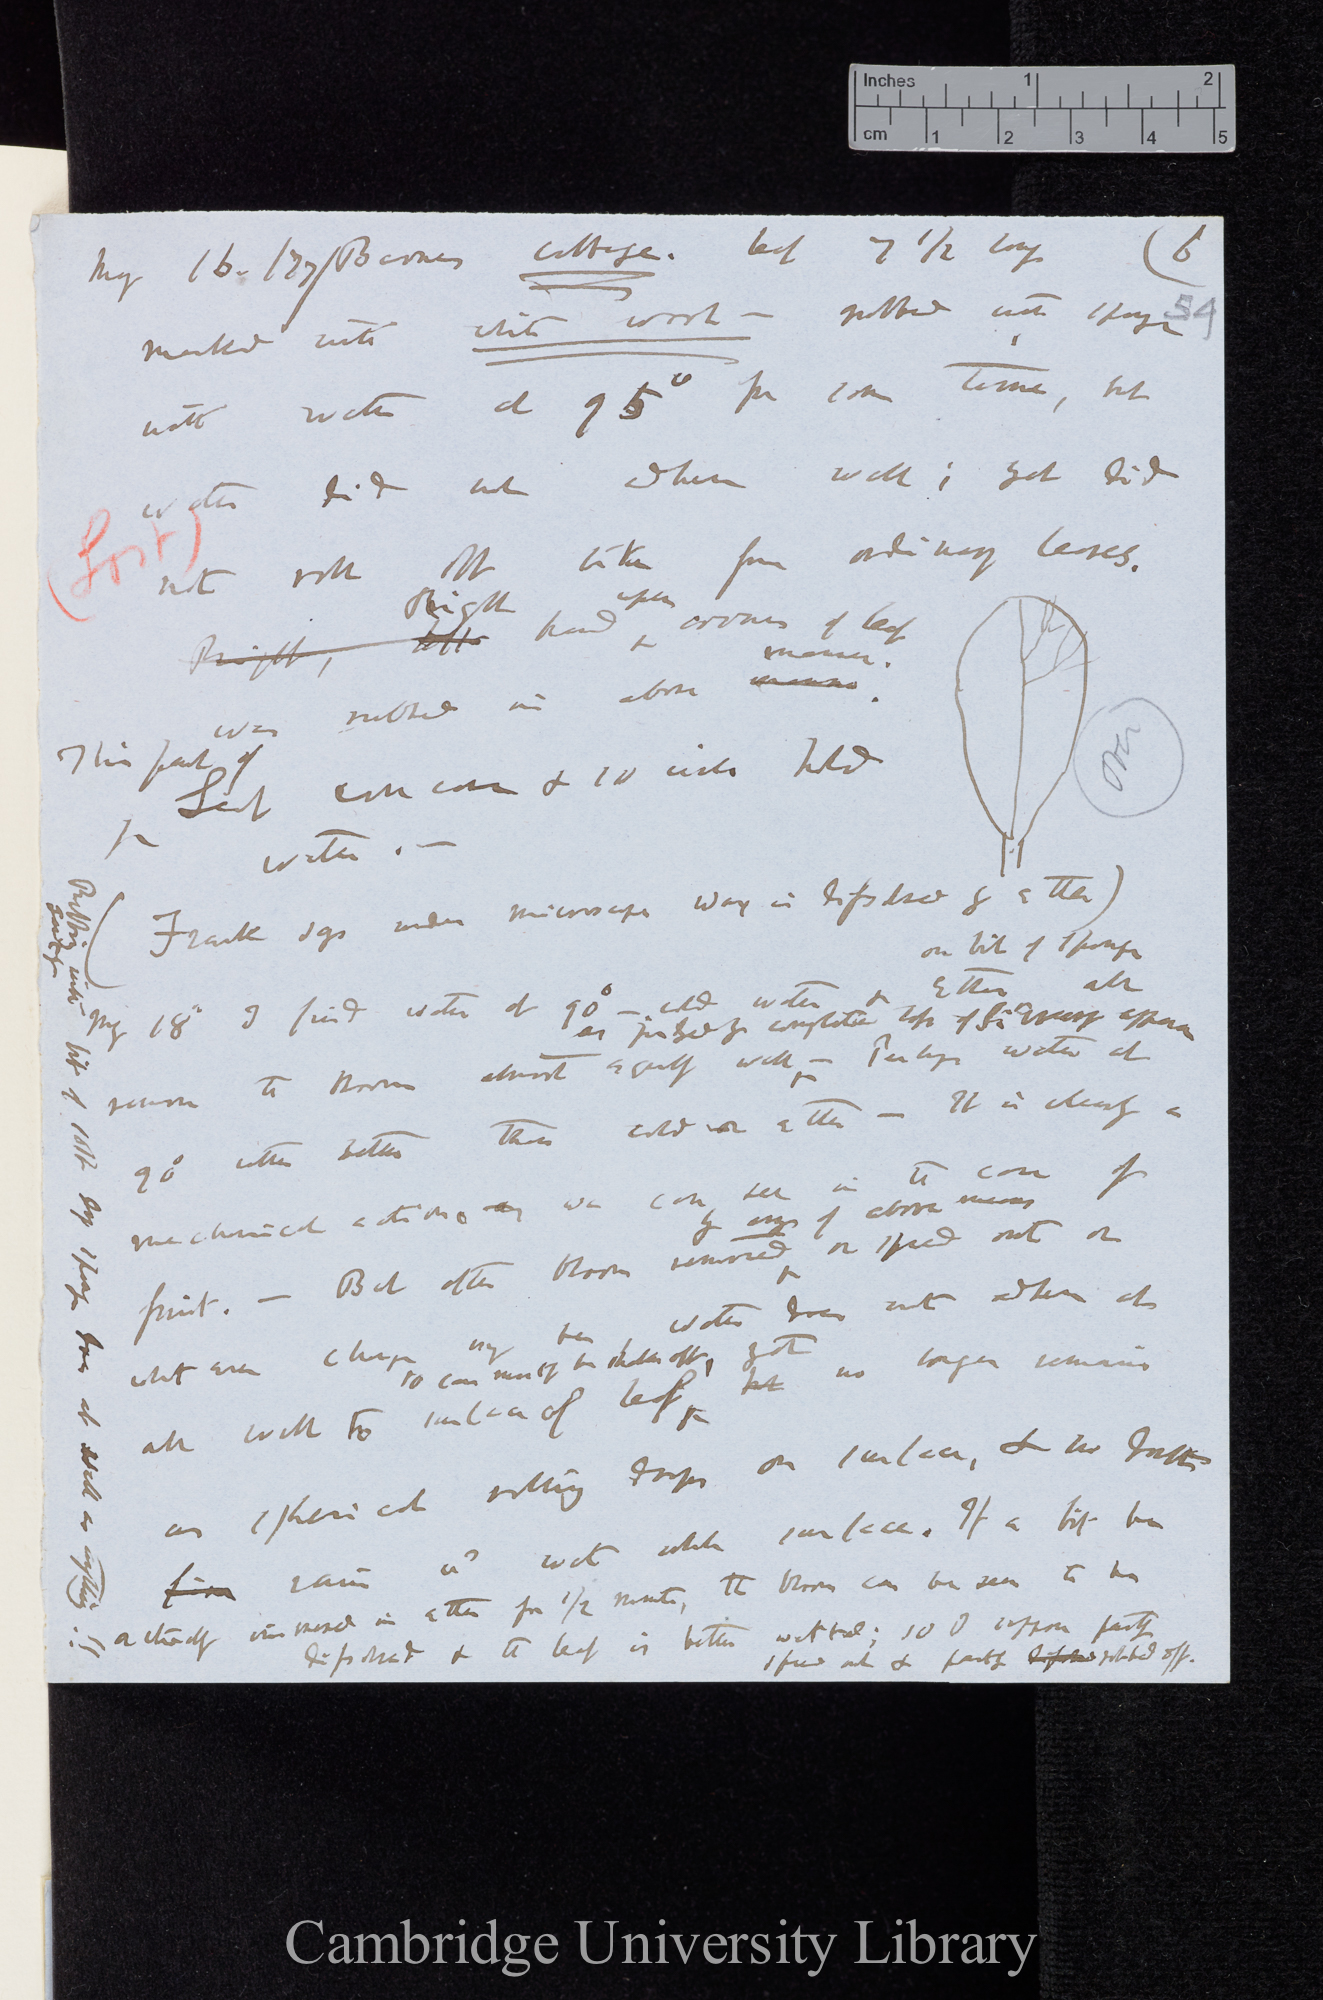 Inches 1 2
cm 1 2 3 4 5
May 16. /77/ Barnes cottage. leaf 7 1/2 long (6
54
marked with white wool — rubbed with sponge
with water at 95° for some time, but
water did not adhere well; yet did
(Lost)
not roll off like from ordinary leaves.
Right upper
hand corner of leaf
was rubbed in above manner.
This part of
Leaf was & so
water. —
over
(Frank says under microscope wax is dissolved by ether)
on bit of sponge
May 18th I find water at 90° — cold water & ether all
as judged by complete loss of appearance
remove the bloom almost equally well — Perhaps water at
90° rather better than cold or ether — It is clearly a
mechanical action as we can see in the case of
by any of above means
fruit. — But after bloom removed, or spread out or
whatever change may be water does not adhere at
so can mostly be shaken off, yet
all well to surface of leaf, no longer remains
as spherical rolling drops on surface, & no doubt
rain wd wet whole surface. If a bit be
actually immersed in ether for 1/2 minute, the bloom can be seen to be
dissolved & the leaf is better wetted; so I suppose partly
spread out & partly rubbed off.
Rubbing with bit of soft dry sponge does as well as anything.!!
Cambridge University Library